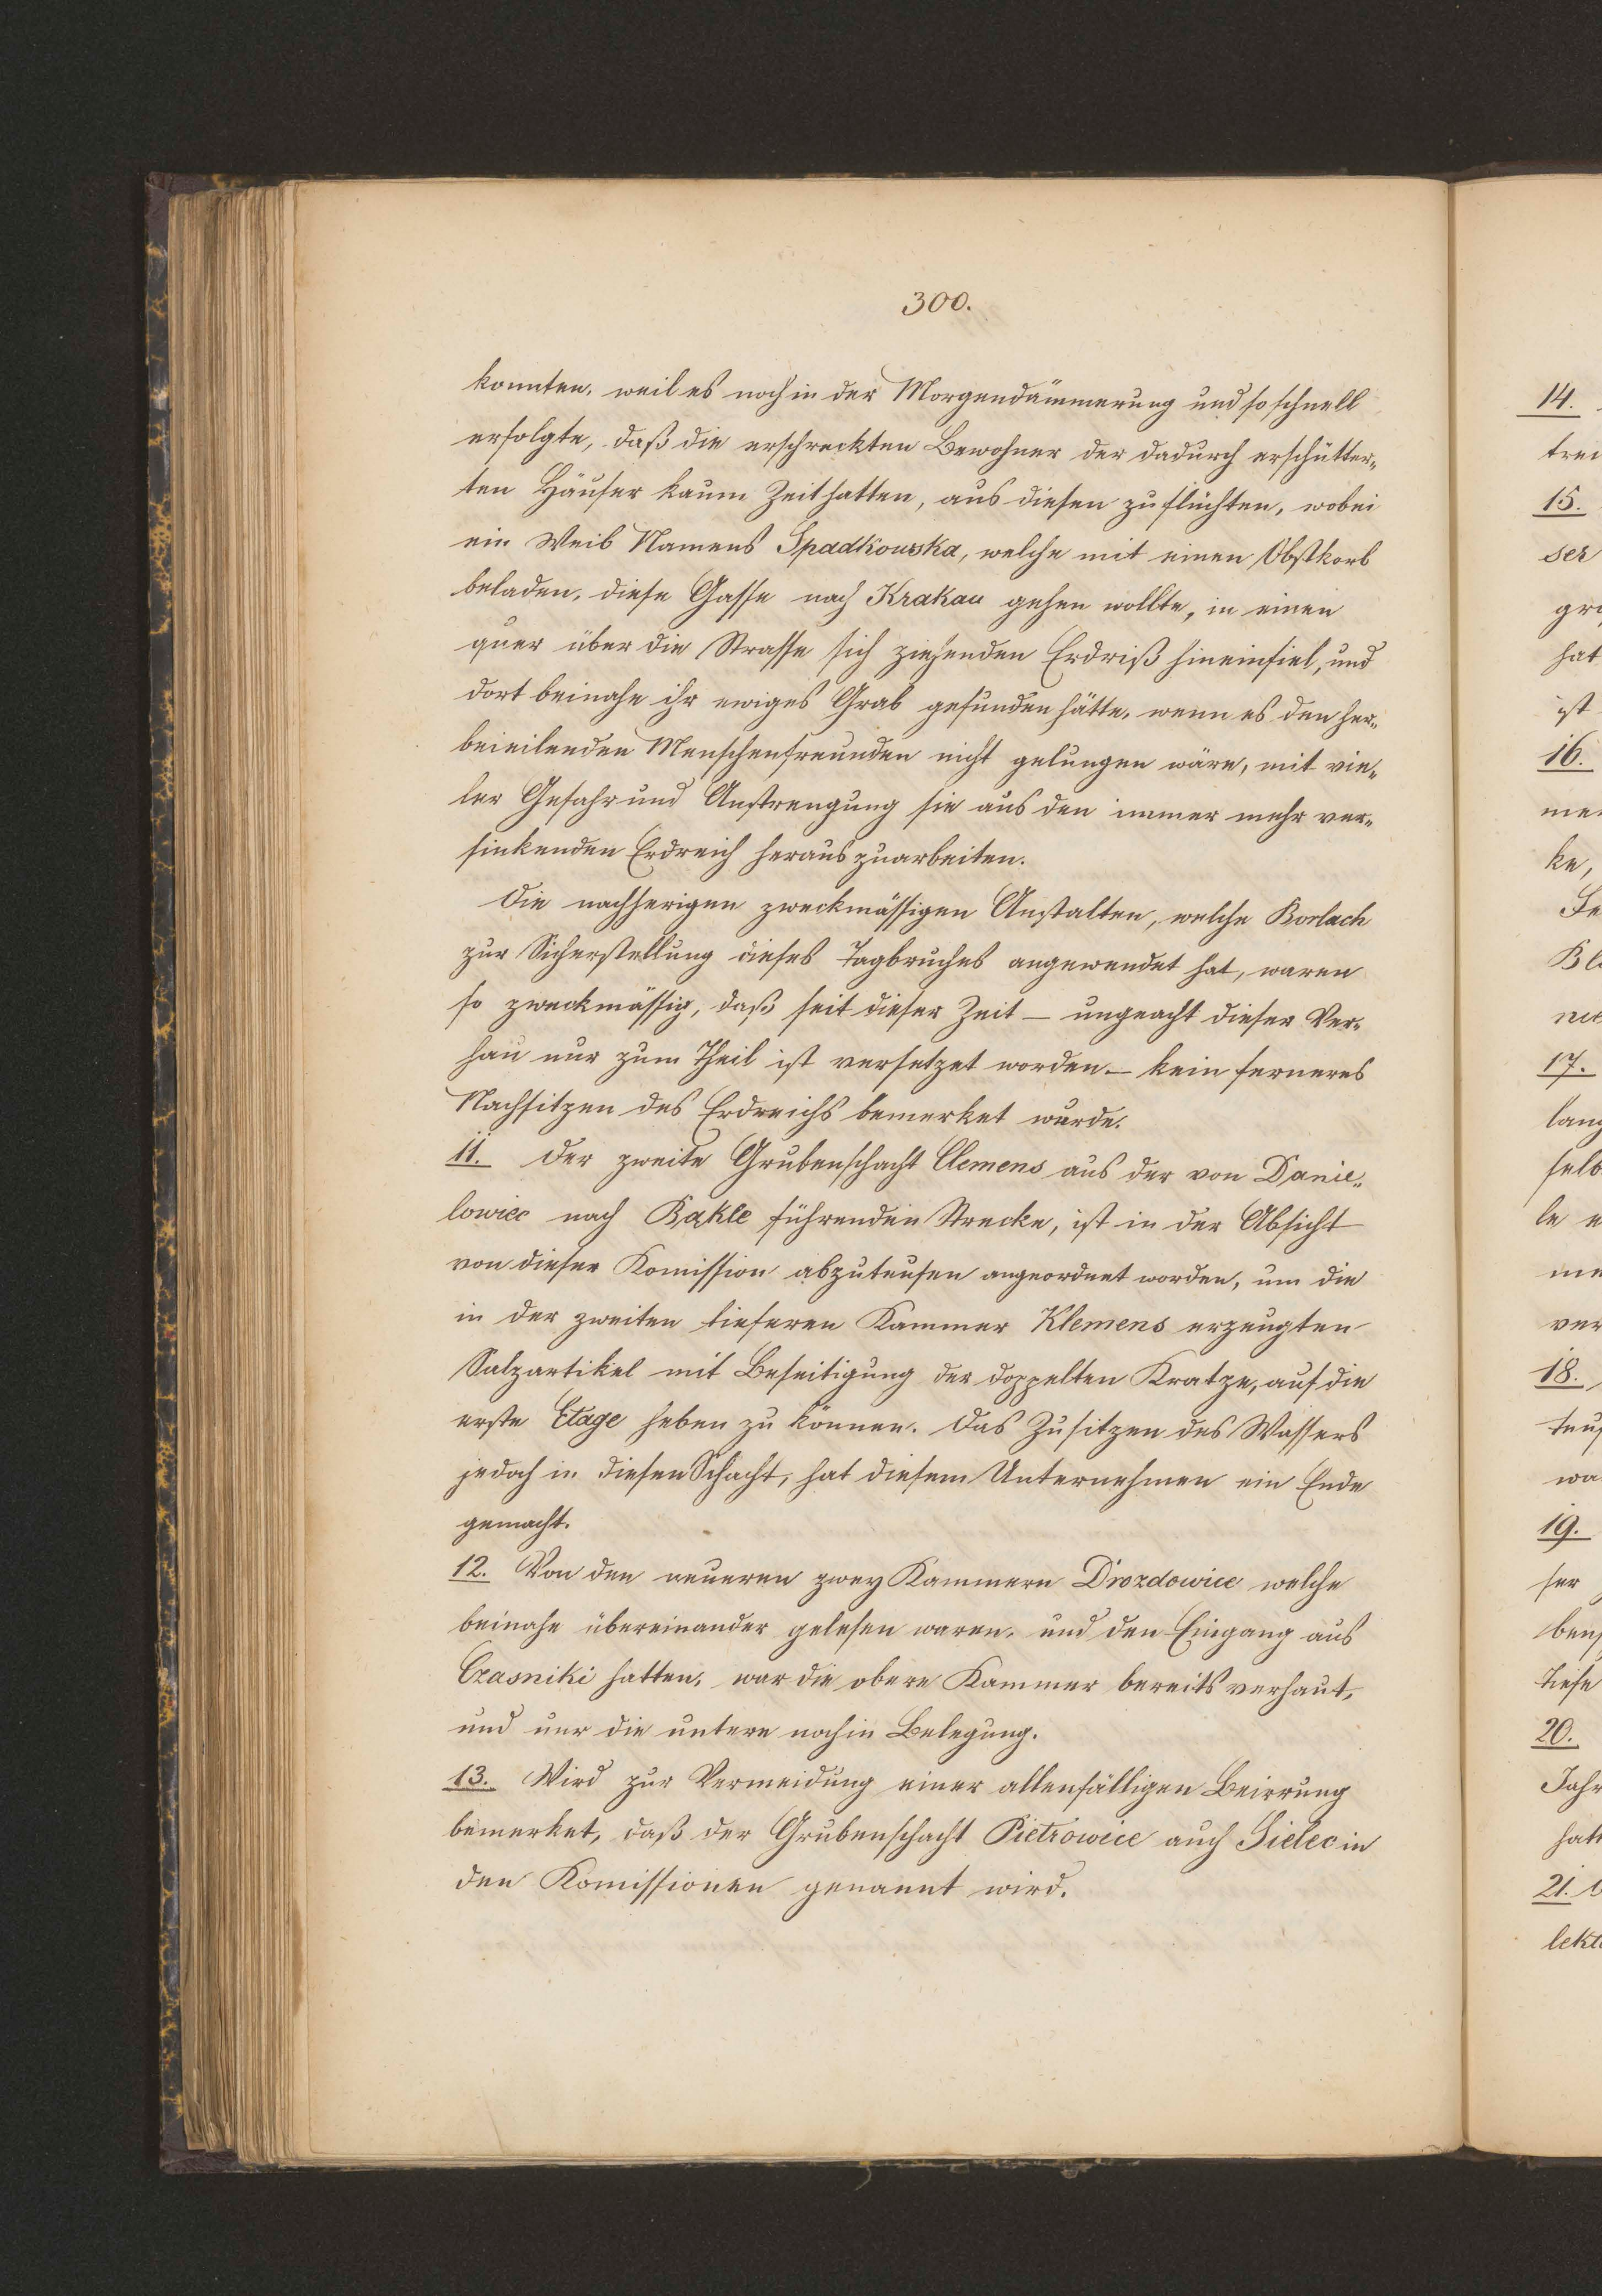 300.
konnten, weil es noch in der Morgendämmerung und so schnell
erfolgte, daß die erschreckten Bewohner der dadurch erschütter„
ten Häuser kaum Zeit hatten, aus diesen zu flüchten, wobei
ein Weib Namens Spadkowska, welche mit einen Obstkorb
beladen, diese Gasse nach Krakau gehen wollte, in einen
quer über die Strasse sich ziehenden Erdriß hineinfiel, und
dort beinahe ihr ewiges Grab gefunden hätte, wenn es den her„
beieilenden Menschenfreunden nicht gelungen wäre, mit vie„
ler Gefahr und Anstrengung sie aus den immer mehr ver„
sinkenden Erdreich herauszuarbeiten.
Die nachherigen zweckmässigen Anstalten, welche Borlach
zur Sicherstellung dieses Tagbruches angewendet hat, waren
so zweckmässig, daß seit dieser Zeit — ungeacht dieser Ver„
hau nur zum Theil ist versetzet worden — kein ferneres
Nachsitzen des Erdreichs bemerket wurde.
11. Der zweite Grubenschacht Clemens aus der von Danie„
lowiec nach Bąkle führenden Strecke, ist in der Absicht
von dieser Komission abzuteufen angeordnet worden, um die
in der zweiten tieferen Kammer Klemens erzeugten
Salzartikel mit Beseitigung der doppelten Kratze, auf die
erste Etage heben zu können. Das Zusitzen des Wassers
jedoch in diesen Schacht, hat diesem Unternehmen ein Ende
gemacht.
12. Von den neueren zwey Kammern Drozdowice welche
beinahe übereinander gelesen waren, und den Eingang aus
Czasniki hatten, war die obere Kammer bereits verhaut,
und nur die untere noch in Belegung.
13. Wird zur Vermeidung einer allenfälligen Beirrung
bemerket, daß der Grubenschacht Pietrowice auch Sielec in
den Komissionen genannt wird.
14.
15.
ser
hat
ist
16.
ke,
17.
18.
19.
ser
tiefe
20.
21.